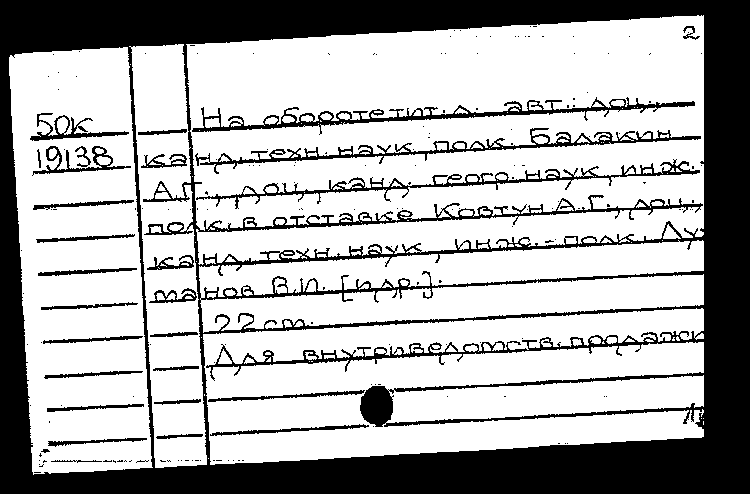 2
50к На обороте тит. л. авт.: доц.,
19138 канд. техн. наук полк. Балакин
А.Г., доц., канд. геогр. наук, инж.-
полк. в отставке Ковтун А.Г., доц.,
канд. техн. наук, инж.-полк. Лух-
манов В.П. [и др.].
22 см.
Для внутриведомств. продажи